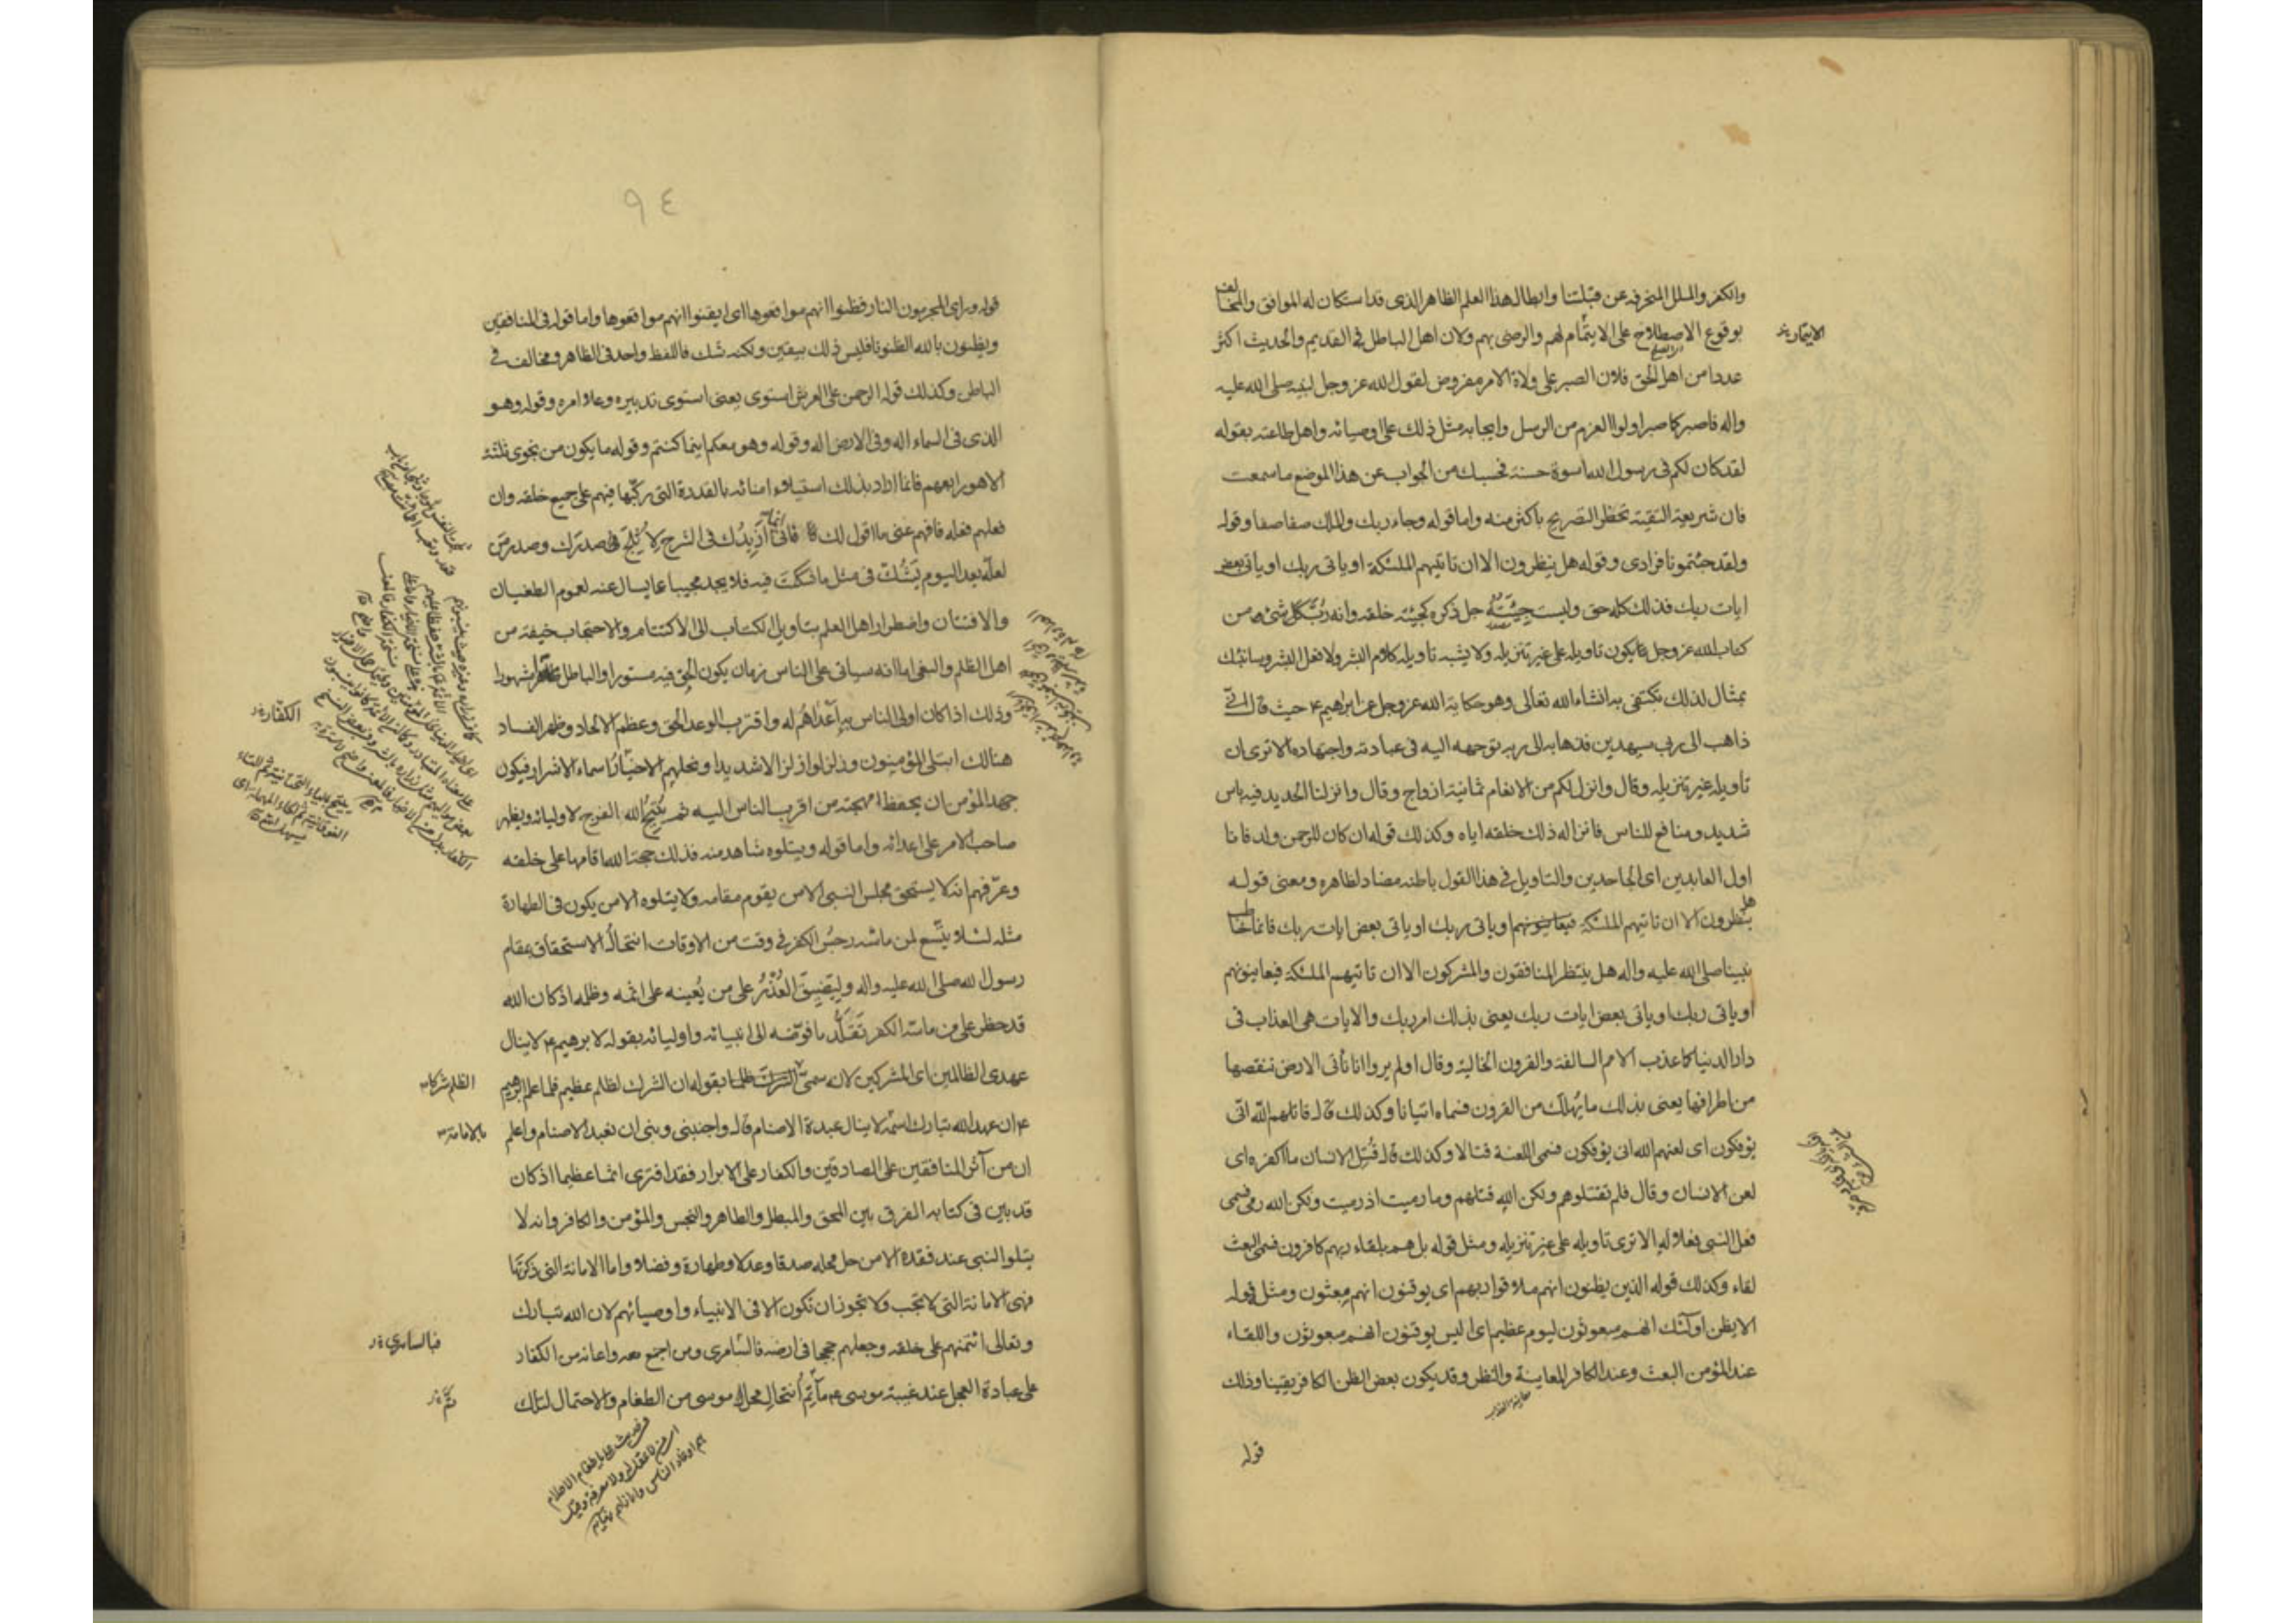 والكفر والملل المنحرفة عن قبلتنا وابطال هذا العلم الظاهر الذى قد استكان له الموافق والمخالف
بوقوع الاصطلاح على الايتمام لهم والرضى بهم ولان اهل الباطل فى القديم والحديث اكثر
عددا من اهل الحق فلان الصبر على ولاة الامر مفروض لقول الله عز وجل لنبيه صلى الله عليه
واله فاصبر كما صبر اولوا العزم من الرسل وايجابه مثل ذلك على اوصيائه واهل طاعته بقوله
لقد كان لكم فى رسول الله اسوة حسنة فحسبك من الجواب عن هذا الموضع ما سمعت
فان شريعة التقية تحظر التصريح باكثر منه واما قوله وجاء ربك والملك صفا صفا وقوله
ولقد جئتمونا فرادى وقوله هل ينظرون الا ان تاتيهم الملئكة او ياتى ربك او ياتى بعض
ايات ربك فذلك كله حق وليست جيئته جل ذكره كجيئة خلقه وانه رب كل شئ ومن
كتاب الله عز وجل ما يكون تاويله على غير تنزيله ولا يشبه تاويله كلام البشر ولا فعل البشر وسانبئك
بمثال لذلك تكتفى به انشاء الله تعالى وهو حكاية الله عز وجل عن ابراهيم ع حيث قال انى
ذاهب الى ربى سيهدين فذهابه الى ربه توجهه اليه فى عبادته واجتهاده الا ترى ان
تاويله غير تنزيله وقال وانزل لكم من الانعام ثمانية ازواج وقال وانزلنا الحديد فيه باس
شديد ومنافع للناس فانزاله ذلك خلقه اياه وكذلك قوله ان كان للرحمن ولد فانا
اول العابدين اى الجاحدين والتاويل فى هذا القول باطنه مضاد لظاهره ومعنى قوله
هل ينظرون الا ان تاتيهم الملئكة فيعاينونهم او ياتى ربك او ياتى بعض ايات ربك فانما خاطب
نبينا صلى الله عليه واله هل ينتظر المنافقون والمشركون الا ان تاتيهم الملئكة فيعاينونهم
او ياتى ربك او ياتى بعض ايات ربك يعنى بذلك امر ربك والايات هى العذاب فى
دار الدنيا كما عذب الامم السالفة والقرون الخالية وقال اولم يروا انا ناتى الارض ننقصها
من اطرافها يعنى بذلك ما يهلك من القرون فسماه اتيانا وكذلك قال قاتلهم الله انى
يؤفكون اى لعنهم الله انى يؤفكون فسمى اللعنة قتالا وكذلك قال قتل الانسان ما اكفره اى
لعن الانسان وقال فلم تقتلوهم ولكن الله قتلهم وما رميت اذ رميت ولكن الله رمى فسمى
فعل النبى فعلا له الا ترى تاويله على غير تنزيله ومثل قوله بل هم بلقاء ربهم كافرون فسمى البعث
لقاء وكذلك قوله الذين يظنون انهم ملاقوا ربهم اى يوقنون انهم مبعثون ومثل قوله
الا يظن اولئك انهم مبعوثون ليوم عظيم اى اليس يوقنون انهم مبعوثون واللقاء
عند المؤمن البعث وعند الكافر المعاينة والنظر وقد يكون بعض الظن الكافر يقينا وذلك
قوله
٩٤
قوله وراى المجرمون النار فظنوا انهم مواقعوها اى ايقنوا انهم مواقعوها واما قوله فى المنافقين
ويظنون بالله الظنونا فليس ذلك بيقين ولكنه شك فاللفظ واحد فى الظاهر ومخالف فى
الباطن وكذلك قوله الرحمن على العرش استوى يعنى استوى تدبيره وعلا امره وقوله وهو
الذى فى السماء اله وفى الارض اله وقوله وهو معكم اينما كنتم وقوله ما يكون من نجوى ثلثة
الا هو رابعهم فانما اراد بذلك استيلاء امنائه بالقدرة التى ركبها فيهم على جميع خلقه وان
فعلهم فعله فافهم عنى ما اقول لك فانى انما ازيدك فى الشرح لاثلج فى صدرك وصدر من
لعله بعد اليوم يشك فى مثل ما شككت فيه فلا يجد مجيبا عما يسال عنه لعموم الطغيان
والافتتان واضطرار اهل العلم بتاويل الكتاب الى الاكتتام والاحتجاب خيفة من
اهل الظلم والبغى اما انه سياتى على الناس زمان يكون الحق فيه مستورا والباطل ظاهرا مشهورا
وذلك اذا كان اولى الناس به اعداهم له واقترب الوعد الحق وعظم الالحاد وظهر الفساد
هنالك ابتلى المؤمنون وزلزلوا زلزالا شديدا ونحلهم الاخيار اسماء الاشرار فيكون
جهد المؤمن ان يحفظ مهجته من اقرب الناس اليه ثم يتيح الله الفرج لاوليائه ويظهر
صاحب الامر على اعدائه واما قوله ويتلوه شاهد منه فذلك حجة الله اقامها على خلقه
وعرفهم انه لا يستحق مجلس النبى الا من يقوم مقامه ولا يتلوه الا من يكون فى الطهارة
مثله لئلا يتسع لمن ماسه رجس الكفر فى وقت من الاوقات انتحال الاستحقاق بمقام
رسول الله صلى الله عليه واله وليضيق العذر على من يعينه على اثمه وظلمه اذ كان الله
قد حظر على من ماسه الكفر تقلد ما فوضه الى انبيائه واوليائه بقوله لابرهيم ع لا ينال
عهدى الظالمين اى المشركين لانه سمى الشرك ظلما بقوله ان الشرك لظلم عظيم فلما علم ابرهيم
ع ان عهد الله تبارك اسمه لا ينال عبدة الاصنام قال واجنبنى وبنى ان نعبد الاصنام واعلم
ان من آثر المنافقين على الصادقين والكفار على الابرار فقد افترى اثما عظيما اذ كان
قد بين فى كتابه الفرق بين المحق والمبطل والطاهر والنجس والمؤمن والكافر وانه لا
يتلو النبى عند فقده الا من حل محله صدقا وعدلا وطهارة وفضلا واما الامانة التى ذكرتها
فهى الامانة التى لا تجب ولا تجوز ان تكون الا فى الانبياء واوصيائهم لان الله تبارك
وتعالى ائتمنهم على خلقه وجعلهم حججا فى ارضه فالسامرى ومن اجتمع معه واعانه من الكفار
على عبادة العجل عند غيبة موسى ع ما تم انتحال محل موسى من الطغام والاحتمال لتلك
الكفار